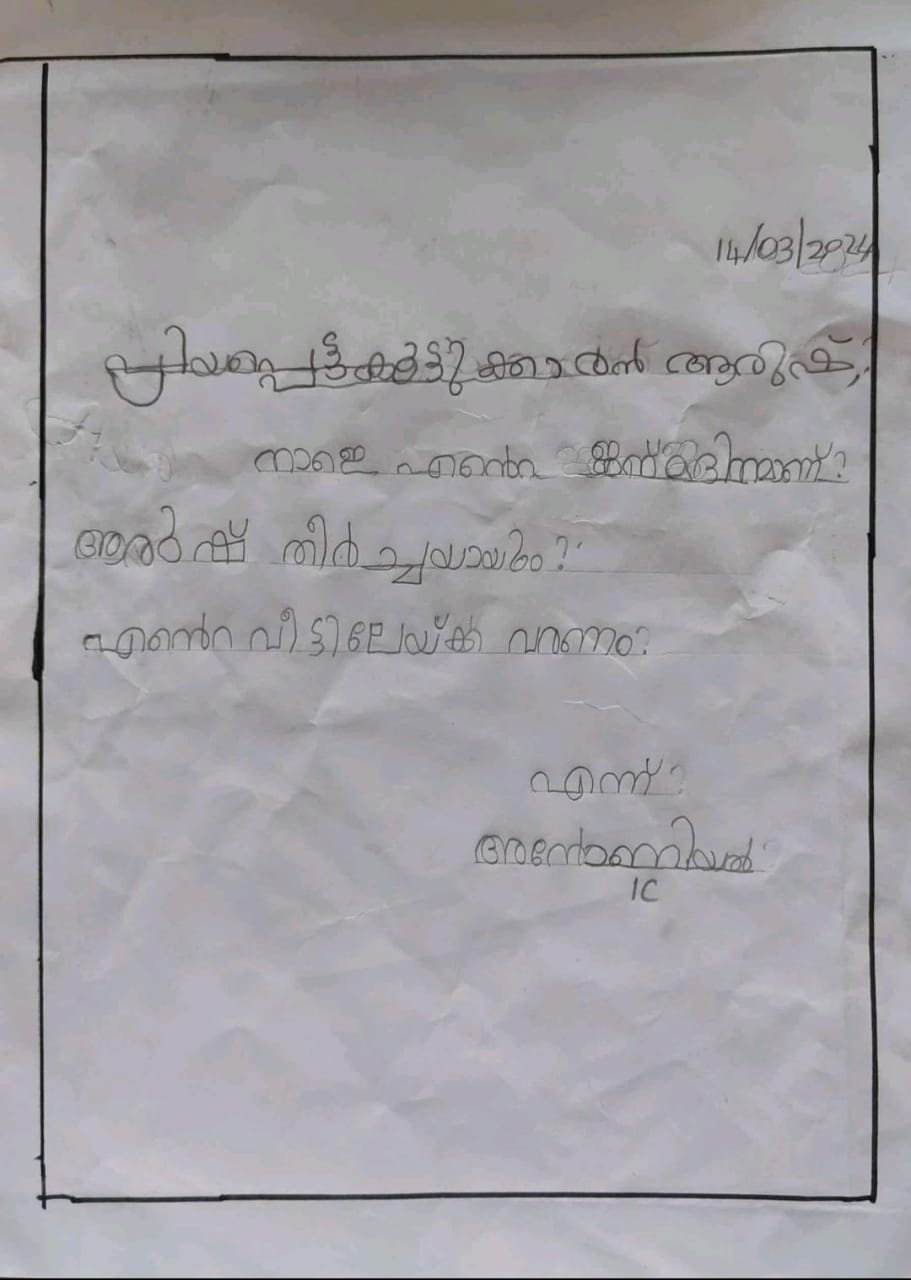 14/03/2024
പ്രിയപ്പെട്ട കൂട്ടുക്കാരൻ ആരുഷ്,
നാളെ എന്റെ ജന്മദിനമാണ്.
ആരുഷ് തീർച്ചയായും
എന്റെ വീട്ടിലേയ്ക്ക് വരണം.
എന്ന്
അന്റോണിയൽ
1C